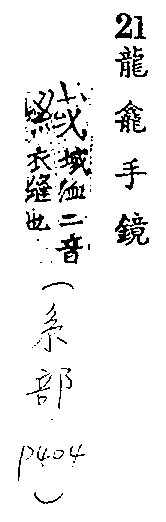 21 龍龕手鏡
域洫二音
衣縫也
(糸部 P404)